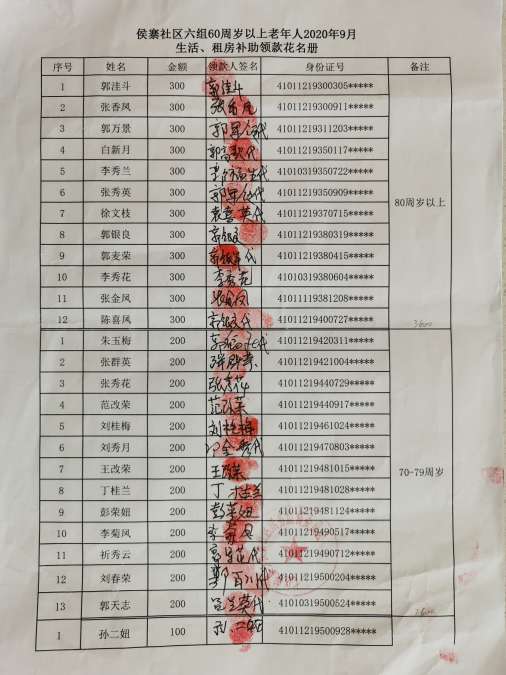 侯寨社区六组60周岁以上老年人2020年9月
生活、租房补助领款花名册
序号 姓名 金额 领款人签名 身份证号 备注
1 郭洼斗 300 郭洼斗 41011219300305*****
2 张香凤 300 张香凤 41011219300911*****
3 郭万景 300 41011219311203*****
4 白新月 300 41011219350117*****
5 李秀兰 300 41010319350722*****
6 张秀英 300 41011219350909*****
7 徐文枝 300 袁喜英代 41011219370715***** 80周岁以上
8 郭银良 300 41011219380319*****
9 郭麦荣 300 41011219380415*****
10 李秀花 300 李秀花 41010319380604*****
11 张金凤 300 41011119381208*****
12 陈喜凤 300 41011219400727***** 3600
1 朱玉梅 200 41011219420311*****
2 张群英 200 41011219421004*****
3 张秀花 200 张秀花 41011219440729*****
4 范改荣 200 范改荣 41011219440917*****
5 刘桂梅 200 刘桂梅 41011219461024*****
6 刘秀月 200 41011219470803*****
7 王改荣 200 王改荣 41011219481015***** 70-79周岁
8 丁桂兰 200 丁桂兰 41011219481028*****
9 彭荣妞 200 彭荣妞 41011219481124*****
10 李菊凤 200 41011219490517*****
11 祈秀云 200 41011219490712*****
12 刘春荣 200 41011219500204*****
13 郭天志 200 41010319500524***** 2600
1 孙二妞 100 孙二妞 41011219500928*****